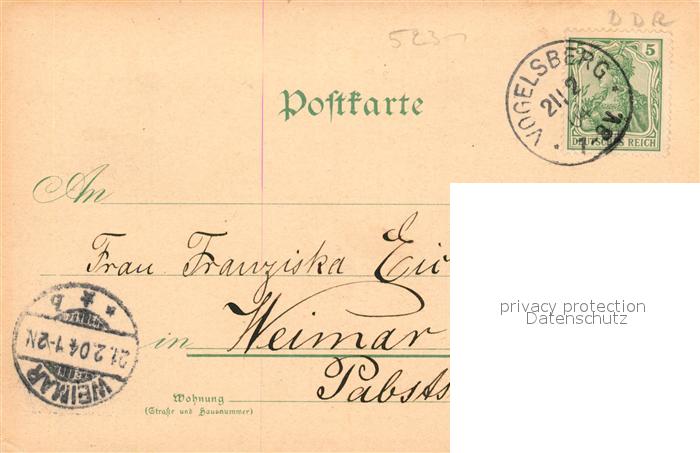 DDR
523
VOGELSBERG
21.2
04
7-8V.
5 5
DEUTSCHES REICH
Postkarte
An
Frau Franziska Eic
in Weimar
Pabsts
Wohnung
(Straße und Hausnummer)
WEIMAR
21.2.04.1-2N
* b
privacy protection
Datenschutz